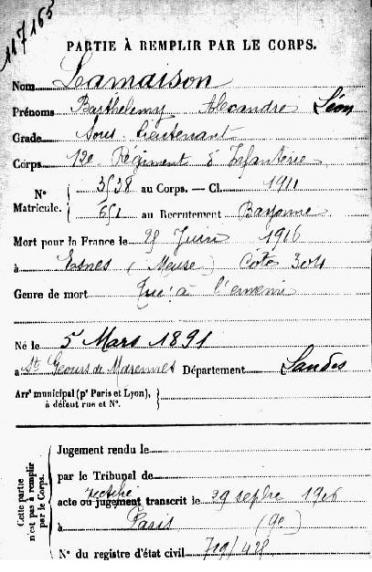 117165
PARTIE À REMPLIR PAR LE CORPS.
Nom Lamaison
Prénoms Barthelemy Alexandre Léon
Grade Sous Lieutenant
Corps 12e Régiment d'Infanterie
N° Matricule. { 3538 au Corps. — Cl. 1911
651 au Recrutement Bayonne
Mort pour la France le Juin 1916
à Esnes (Meuse) Cote 304
Genre de mort Tué à l'ennemi
Né le 5 Mars 1891
à St Geours de Maremnes Département Landes
Arrt municipal (pr Paris et Lyon), à défaut rue et N°.
Cette partie n'est pas à remplir par le Corps.
Jugement rendu le
par le Tribunal de
acte ou jugement transcrit le 29 septbre 1916
à Paris (9e)
N° du registre d'état civil 719/428